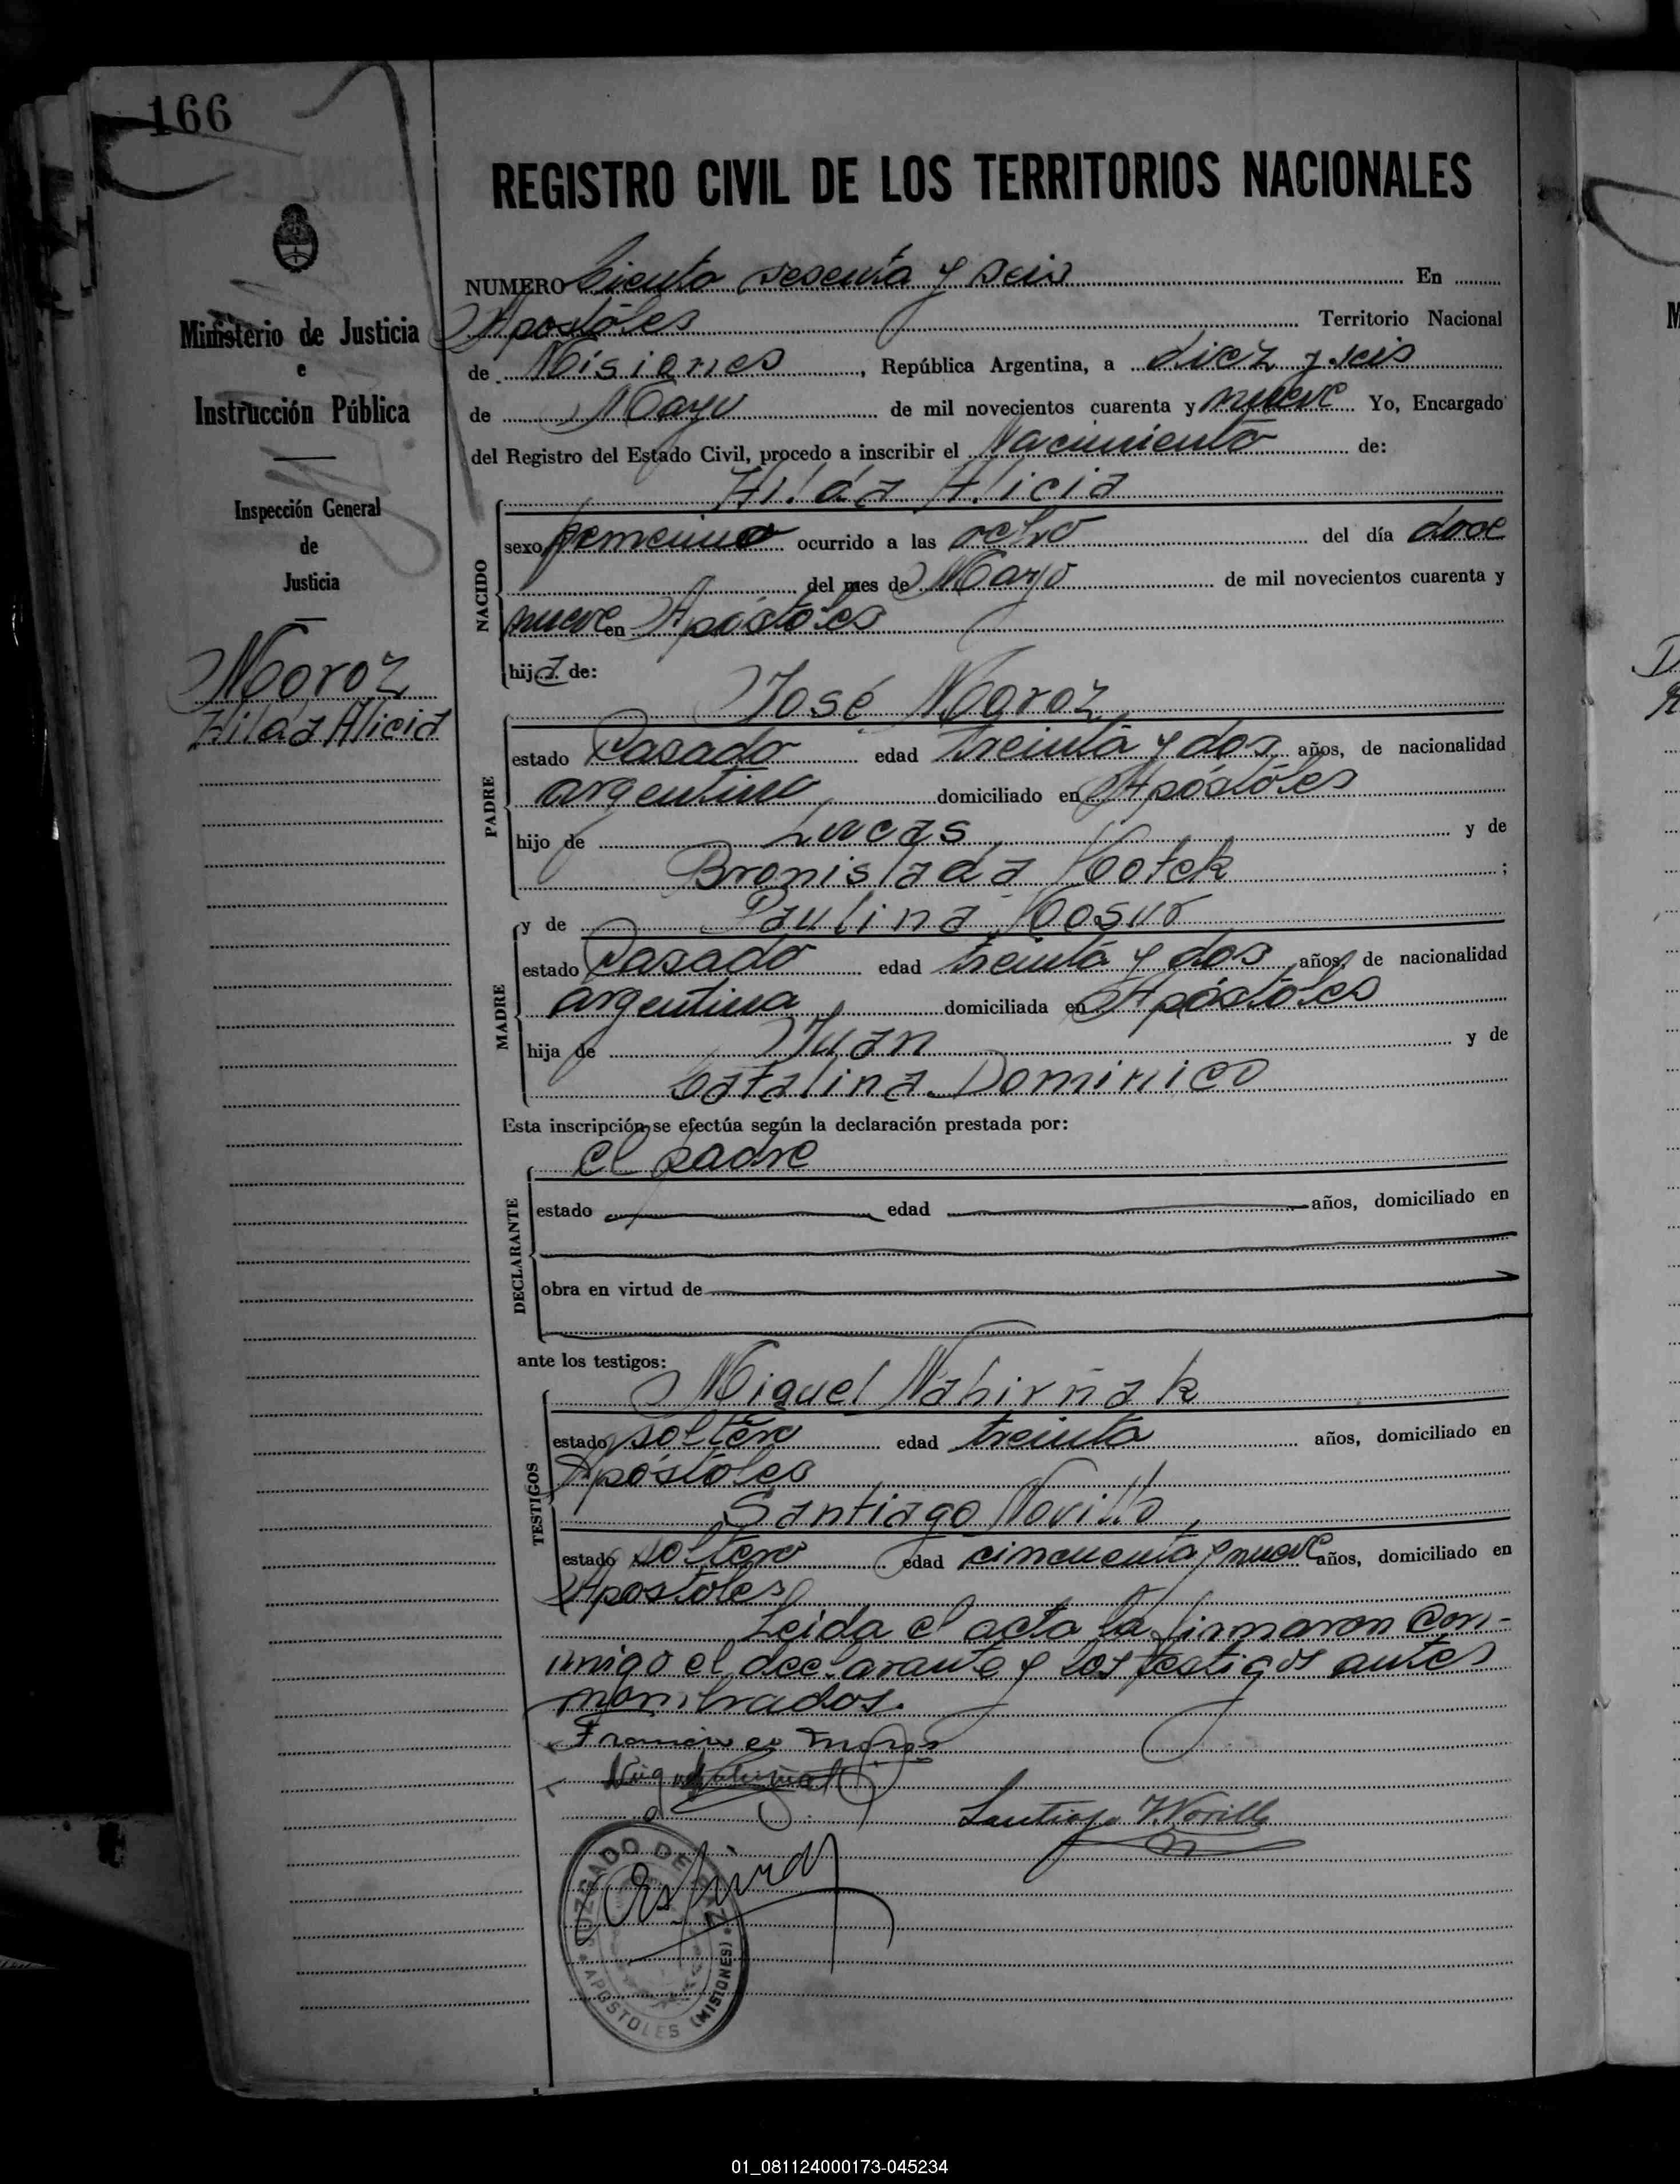 166
REGISTRO CIVIL DE LOS TERRITORIOS NACIONALES
Ministerio de Justicia
e
Instrucción Pública
Inspección General
de
Justicia
Moroz
Hilda Alicia
NUMERO Ciento sesenta y seis En
Apostóles Territorio Nacional
de Misiones, República Argentina, a diez y seis
de Mayo de mil novecientos cuarenta y nueve Yo, Encargado
del Registro del Estado Civil, procedo a inscribir el Nacimiento de:
Hilda Alicia
NACIDO
sexo femenino ocurrido a las ocho del día doce
del mes de Mayo de mil novecientos cuarenta y
nueve en Apóstoles
hija de:
José Moroz
PADRE
estado Casado edad treinta y dos años, de nacionalidad
argentino domiciliado en Apóstóles
hijo de Lucas y de
Bronislada Kotek;
y de Paulina Kosur
MADRE
estado Casado edad treinta y dos años, de nacionalidad
argentina domiciliada en Apóstoles
hija de Juan y de
Catalina Dominico
Esta inscripción se efectúa según la declaración prestada por:
el padre
DECLARANTE
estado edad años, domiciliado en
obra en virtud de
ante los testigos:
Miguel Nahirñak
TESTIGOS
estado soltero edad treinta años, domiciliado en
Apóstoles
Santiago Novillo,
estado soltero edad cincuenta y nueve años, domiciliado en
Apostoles
Leida el acta la firmaron con-
migo el declarante y los testigos antes
nombrados.
Santiago Novillo
JUZGADO DE PAZ
APOSTOLES (MISIONES)
01_081124000173-045234